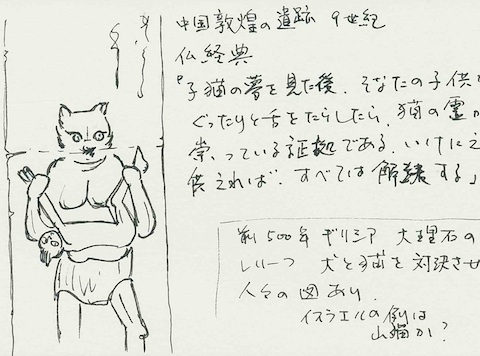 中国敦煌の遺跡 9世紀
仏経典
『子猫の夢を見た後、そなたの子供が
ぐったりと舌をたらしたら、猫の霊が
祟っている証拠である。いけにえ
供えれば、すべては解決する」
前500年 ギリシア 大理石の
レリーフ 犬と猫を対決させ
人々の図あり。
イスラエルの例は
山猫か?